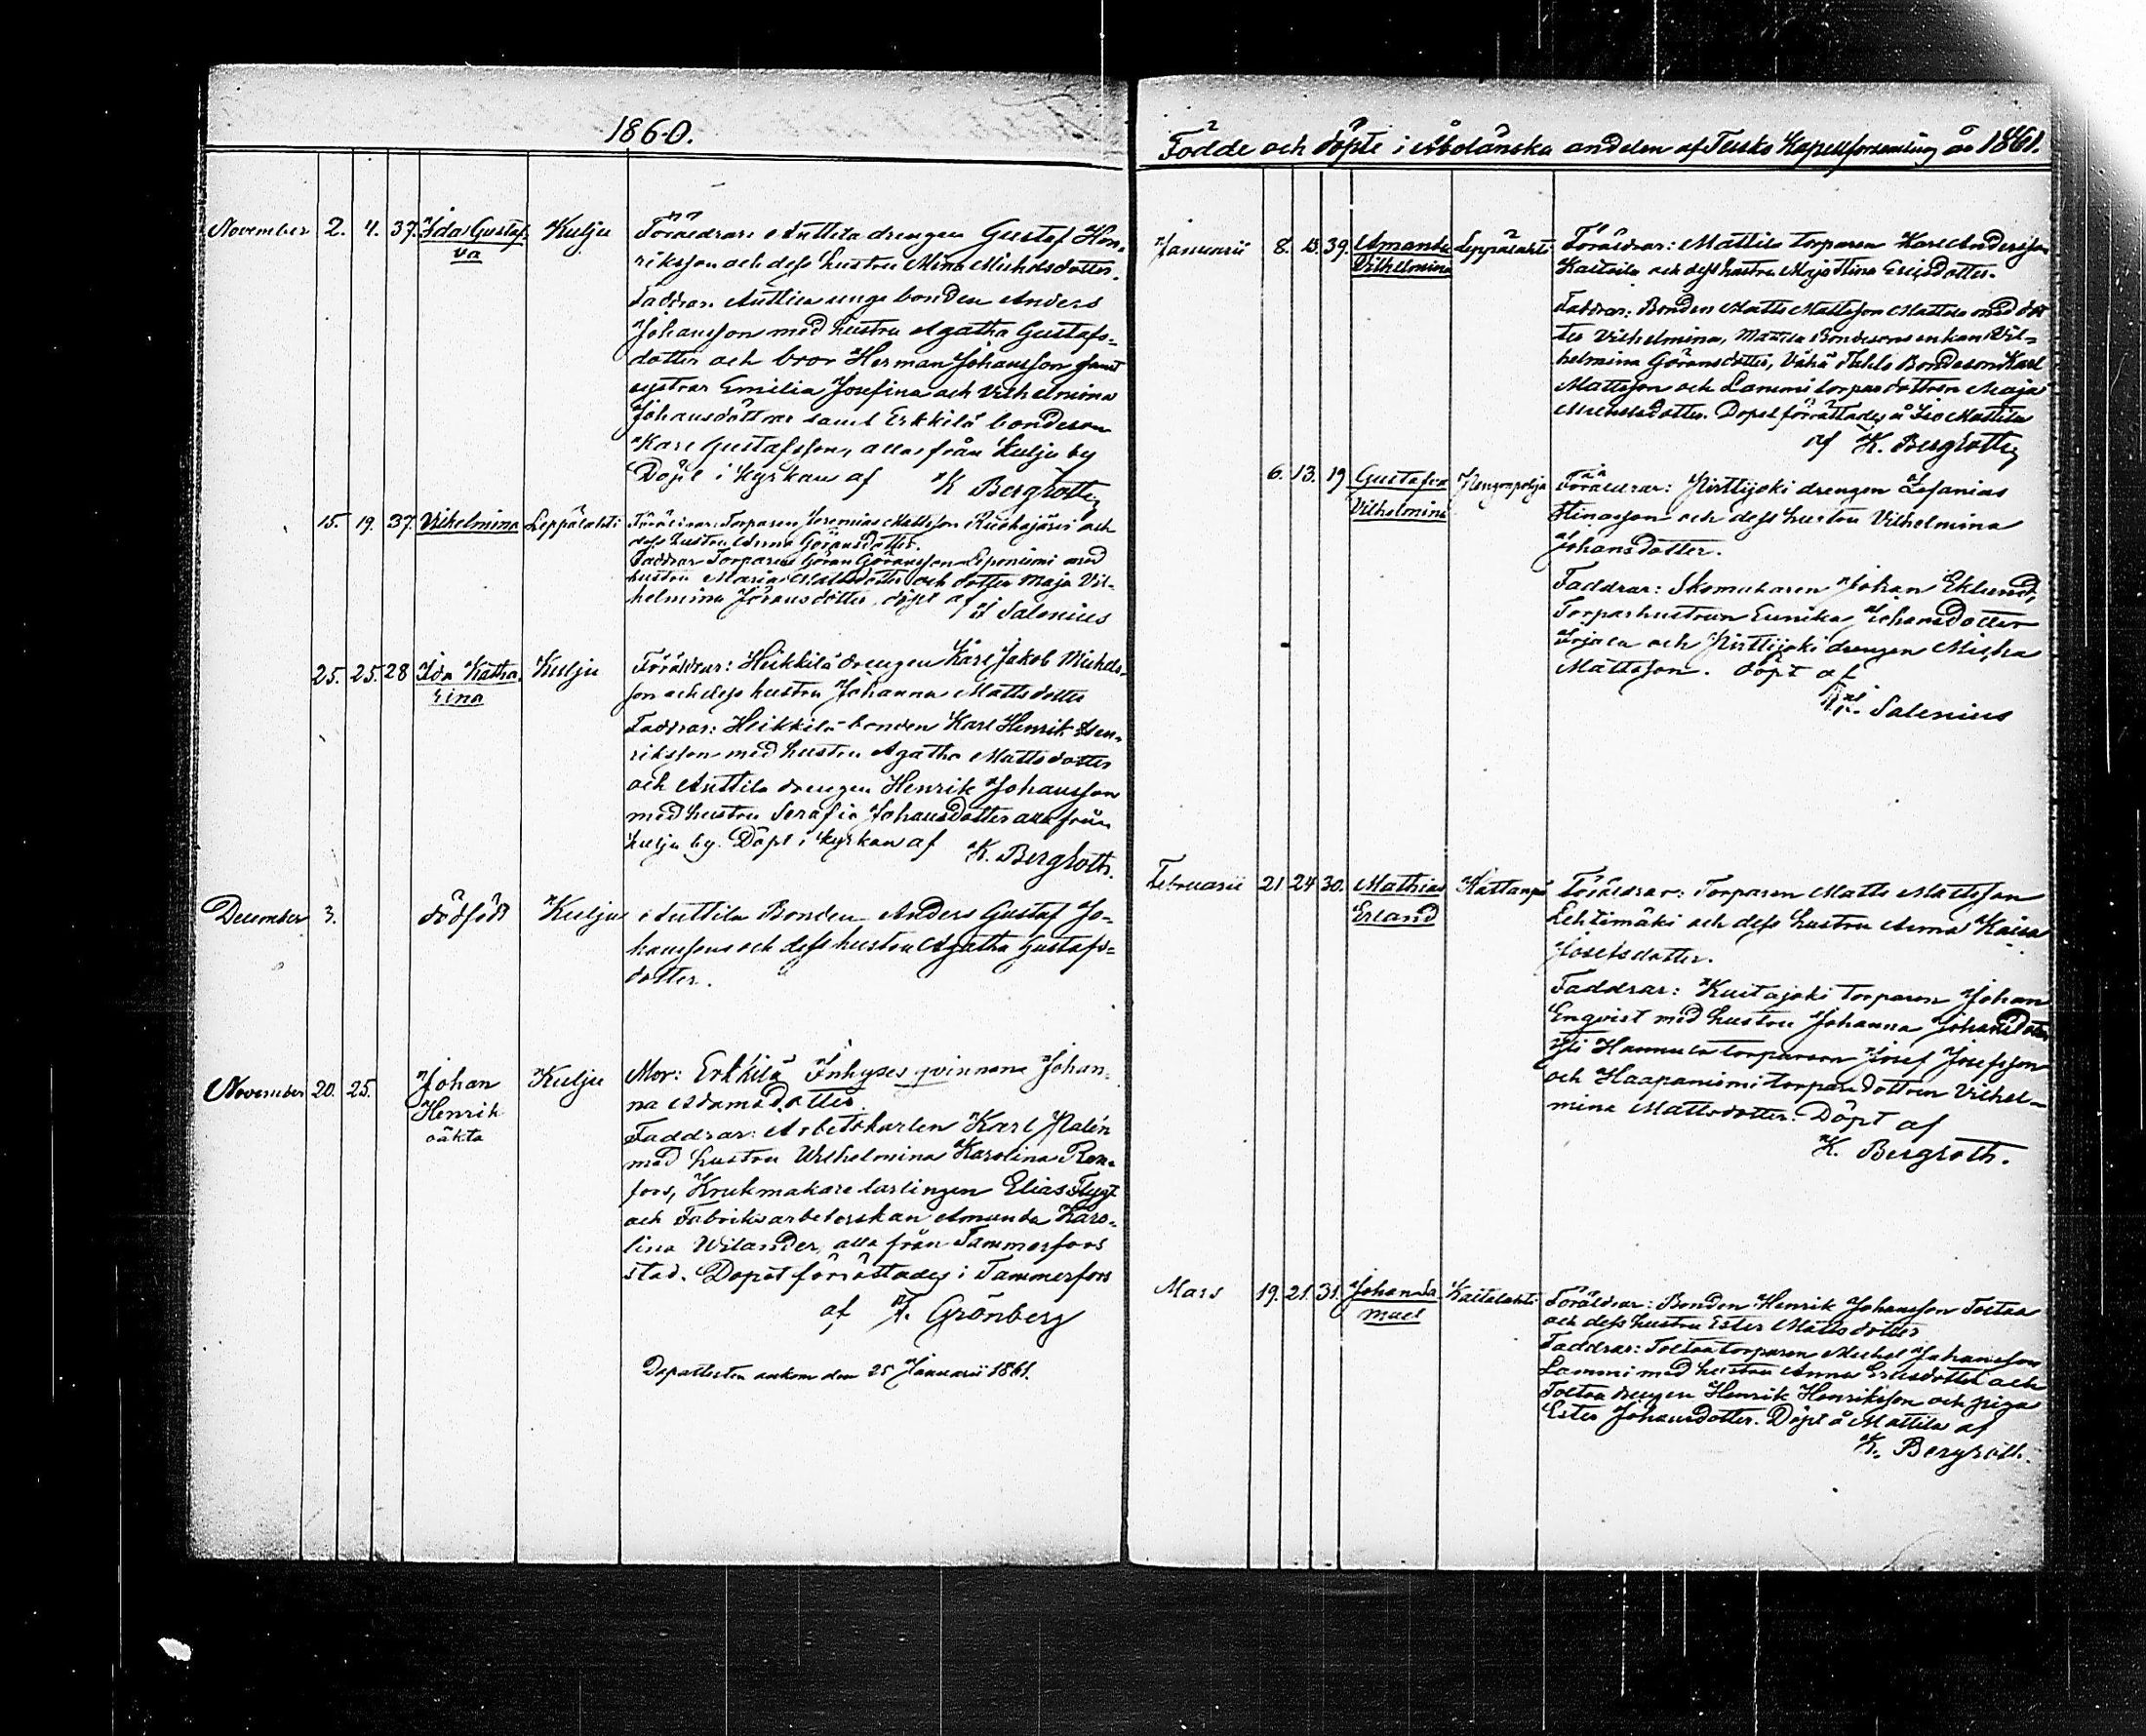 1860.
November 2. 4. 37. Ida Gustaf- Kulju Föräldrar: Anttila drengen Gustaf Hen-
va riksson och dess hustru Mina Michelsdotter.
Faddrar. Anttila unge bonden Anders
Johansson med hustru Agatha Gustafs-
dotter och bror Herman Johansson samt
systrar Emilia Josefina och Vilhelmina
Johansdöttrar samt Erkkilä bondeson
Karl Gustafsson, alla från Kulju by
Döpt i kyrkan af K Bergroth
15. 19. 37. Vilhelmina Leppälahti Föräldrar: Torparen Jeremias Mattsson Ruohojärvi och
dess hustru Anna Göransdotter.
Faddrar Torparen Göran Göransson Leponiemi med
hustru Maria Mattsdotter och dotter Maja Vil-
helmina Jöransdotter, döpt af
Salenius
25. 25. 28 Ida Katha- Kulju Föräldrar: Heikkilä drengen Karl Jakob Michels-
rina son och dess hustru Johanna Mattsdotter
Faddrar: Heikkilä bonden Karl Henrik Hen-
riksson med hustru Agatha Mattsdotter
och Anttila drengen Henrik Johansson
med hustru Serafia Johansdotter alla från
Kulju by. Döpt i kyrkan af
K. Bergroth.
December 3. dödfödt Kulju Anttila Bonden Anders Gustaf Jo-
hanssons och dess hustru Agatha Gustafs-
dotter.
November 20. 25. Johan Kulju Mor: Erkkilä Inhyses qvinnan Johan-
Henrik na Adamsdotter.
oäkta Faddrar: Arbetskarlen Karl Palén
med hustru Wilhelmina Karolina Ren-
fors, Krukmakare lärlingen Elias Flygt
och Fabriksarbeterskan Amanda Karo-
lina Wilander, alla från Tammerfors
stad. Dopet förrättades i Tammerfors
af F. Grönberg
Dopattesten ankom den 25 Januarii 1861.
Födde och döpte i Åboländska andelen af Teisko Kapellförsamling år 1861.
Januarii 8. 13. 39. Amanda Leppälahti Föräldrar: Mattila torparen Karl Andersson
Vilhelmina Kaitoila och dess hustru Maja Stina Ericsdotter.
Faddrar: Bonden Matts Mattsson Mattila med dot
ter Vilhelmina, Mattila Bondesons enkan Vil-
helmina Göransdotter, Vähä Bondeson Karl
Mattsson och Lammi torpardottren Maja
Michelsdotter. Dopet förrättades å Iso Mattila
af K. Bergroth
6. 13. 19 Gustafva Föräldrar: Pirttijoki drengen Zefanias
Vilhelmina och dess hustru Vilhelmina
Johansdotter.
Faddrar: Skomakaren Johan Eklund,
Torparhustrun Eunika Johansdotter
och Pirttijoki drengen Misha
Mattsson. döpt af
Salenius
Februarii 21 24 30. Mathias Föräldrar: Torparen Matts Mattsson
Erland Lehtimäki och dess hustru Anna Kaisa
Josefsdotter.
Faddrar: Kuitajoki torparen Johan
Enqvist med hustru Johanna Johansdotter
Yli Hannula torparen Josef Josefsson
och Haapaniemi torpare dottren Vilhel-
mina Mattsdotter. Döpt af
K. Bergroth.
Mars 19. 21. 31. Johan Sa- Kaitalahti Föräldrar: Bonden Henrik Johansson Toltaa
muel och dess hustru Ester Mattsdotter
Faddrar: Toltaa torparen Michel Johansson
Lammi med hustru Anna Ericsdotter och
Toltaa drengen Henrik Henriksson och piga
Ester Johansdotter. Döpt å Mattila af
K. Bergroth.